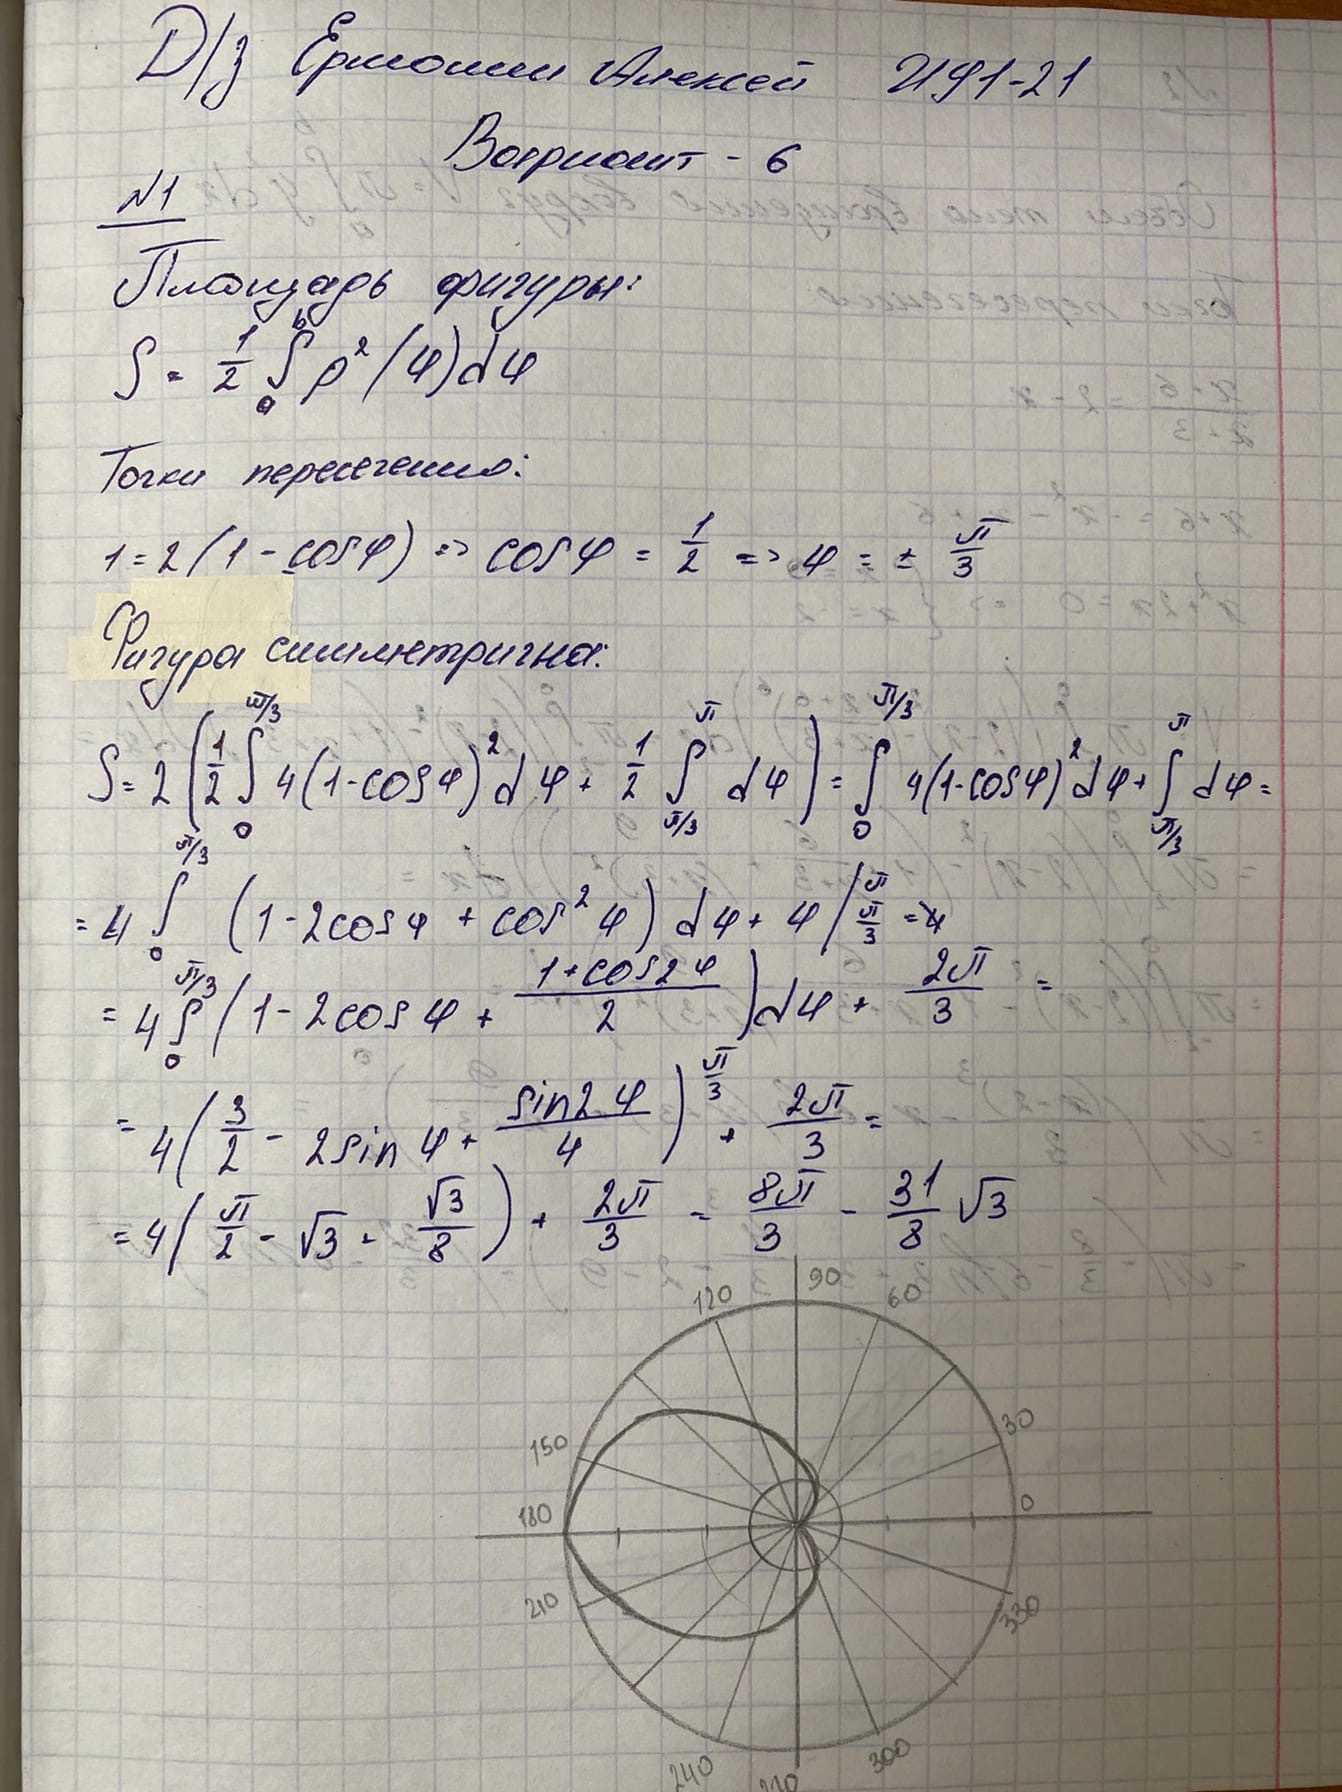 Д/з Ермошин Алексей ИУ1-21
Вариант - 6
№1
Площадь фигуры:
S = 1/2 ∫_a^b ρ²(φ)dφ
Точки пересечения:
1 = 2(1 - cosφ) => cosφ = 1/2 => φ = ± π/3
Фигура симметрична:
S = 2(1/2 ∫_0^{π/3} 4(1-cosφ)² dφ + 1/2 ∫_{π/3}^π dφ) = ∫_0^{π/3} 4(1-cosφ)² dφ + ∫_{π/3}^π dφ =
= 4 ∫_0^{π/3} (1 - 2cosφ + cos²φ) dφ + φ |_{π/3}^π =
= 4 ∫_0^{π/3} (1 - 2cosφ + (1+cos2φ)/2) dφ + 2π/3 =
= 4(3/2 - 2sinφ + sin2φ/4)^{π/3} + 2π/3 =
= 4(π/2 - √3 - √3/8) + 2π/3 = 8π/3 - 31/8 √3
90
120 60
150 30
180 0
210 330
240 270 300